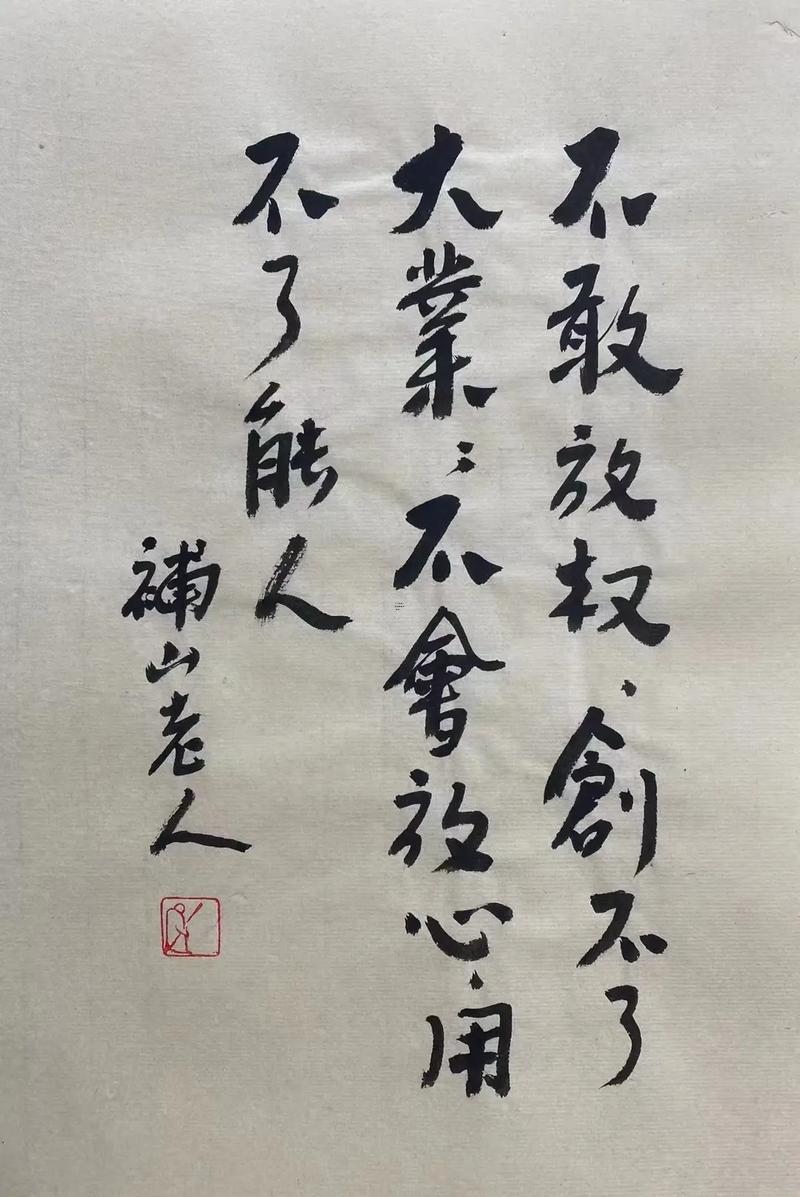 不敢放权，創不了
大業；不會放心，用
不了能人
補山老人